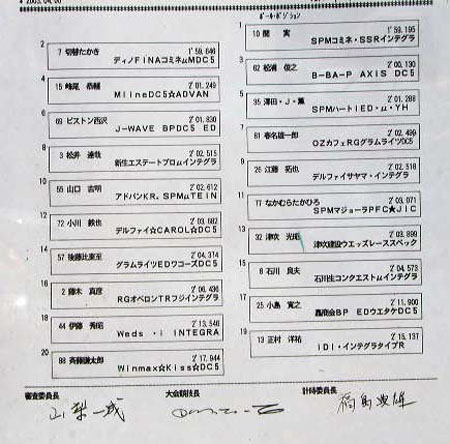 ポール・ポジション
1
10 関 実 1'59.195
SPMコミネ・SSRインテグラ
2
7 切替たかき 1'59.646
ディノFINAコミネμMDC5
3
62 松浦 俊之 2'00.130
B-BA-P AXIS DC5
4
15 峰尾 恭輔 2'01.249
MlineDC5☆ADVAN
5
35 澤田・J・薫 2'01.288
SPMハートIED・μ・YH
6
69 ピストン西沢 2'01.830
J-WAVE BPDC5 ED
7
81 春名雄一郎 2'02.499
OZカフェRGグラムライツDC5
8
3 松井 達哉 2'02.515
新生エステートプロμインテグラ
9
26 江藤 拓也 2'02.518
デルファイサヤマ・インテグラ
10
55 山口 吉明 2'02.612
アドバンKR、SPMμTEIN
11
77 なかむらたかひろ 2'03.071
SPMマジョーラPFC★JIC
12
72 小川 鉄也 2'03.682
デルファイ☆CAROL☆DC5
13
32 津吹 光昭 2'03.899
津吹建設ウエッズレーススペック
14
57 後藤比東至 2'04.374
グラムライツEDワコーズDC5
15
8 石川 良夫 2'04.573
石川生コンクエストμインテグラ
16
2 藤木 真彦 2'06.436
RGオベロンTRフジインテグラ
17
25 小島 寛之 2'11.900
轟商会BP EDウエタケDC5
18
44 伊藤 秀昭 2'13.546
Weds・i INTEGRA
19
13 正村 洋祐 2'15.137
IDI・インテグラタイプR
20
88 斉藤謙太郎 2'17.944
Winmax☆Kiss☆DC5
審査委員長
大会競技長
計時委員長